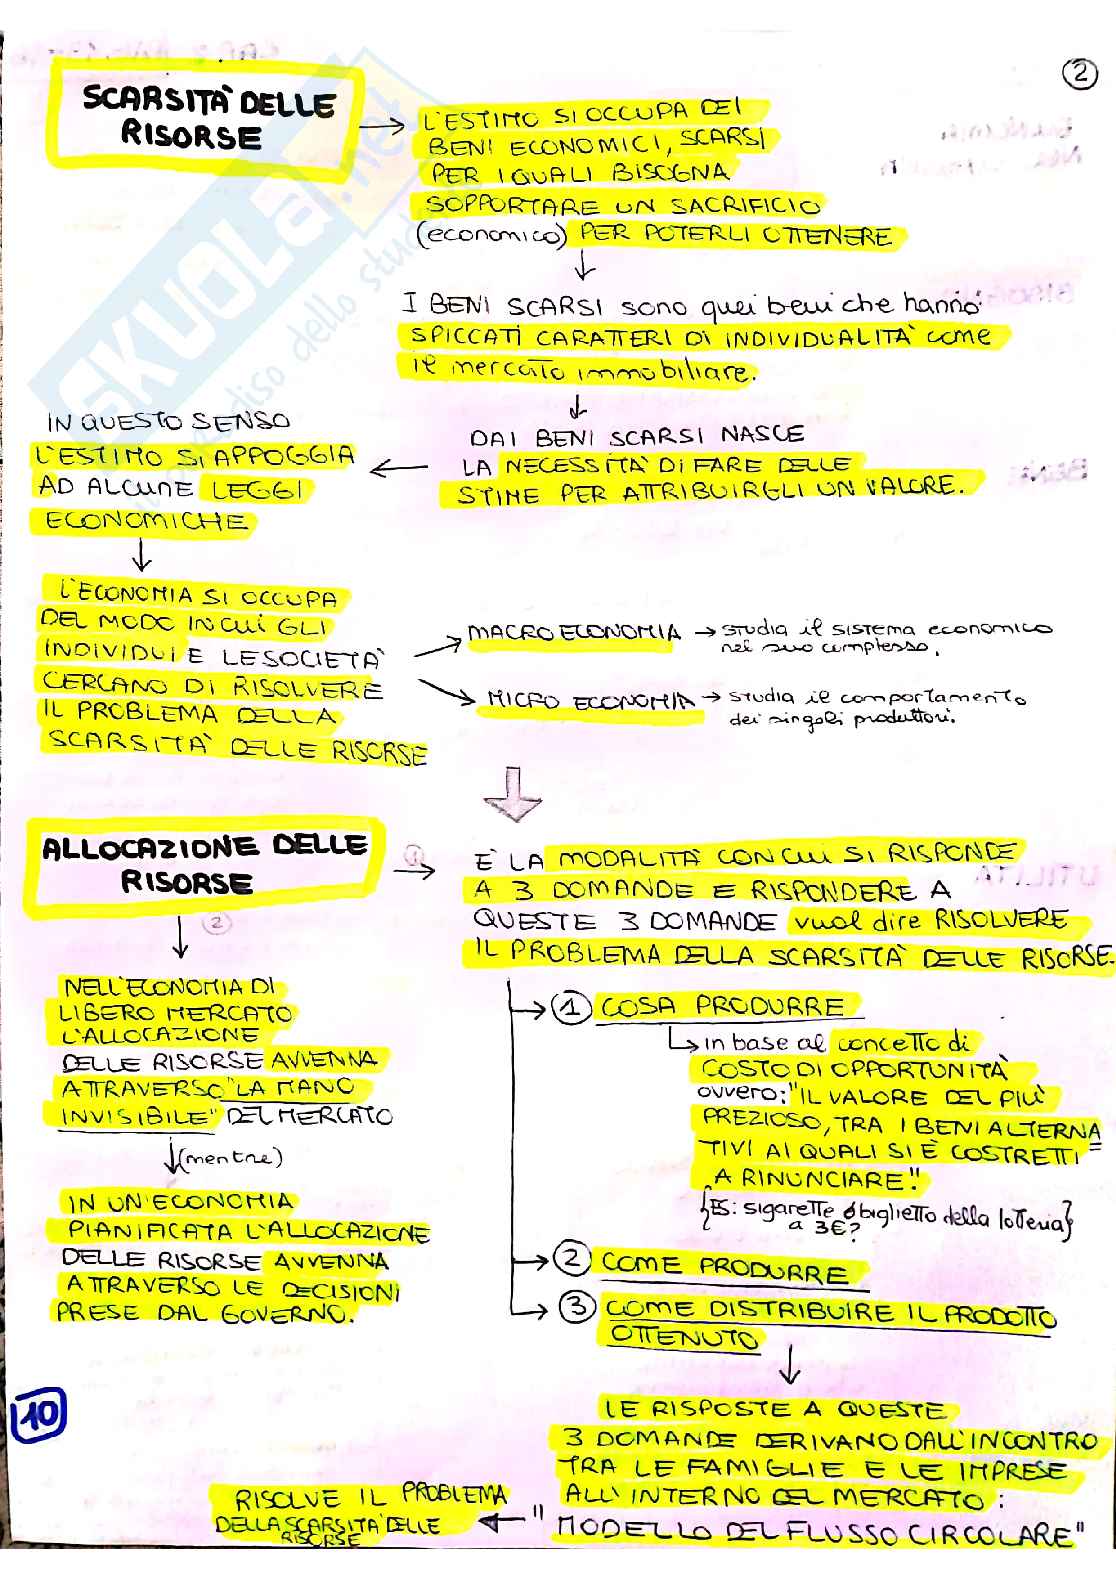 2
SCARSITÀ DELLE
RISORSE
L'ESTIMO SI OCCUPA DEI
BENI ECONOMICI, SCARSI
PER I QUALI BISOGNA
SOPPORTARE UN SACRIFICIO
(economico) PER POTERLI OTTENERE
I BENI SCARSI sono quei beni che hanno
SPICCATI CARATTERI DI INDIVIDUALITÀ come
il mercato immobiliare.
DAI BENI SCARSI NASCE
LA NECESSITÀ DI FARE DELLE
STIME PER ATTRIBUIRGLI UN VALORE.
IN QUESTO SENSO
L'ESTIMO SI APPOGGIA
AD ALCUNE LEGGI
ECONOMICHE
L'ECONOMIA SI OCCUPA
DEL MODO IN CUI GLI
INDIVIDUI E LE SOCIETÀ
CERCANO DI RISOLVERE
IL PROBLEMA DELLA
SCARSITÀ DELLE RISORSE
MACRO ECONOMIA → studia il sistema economico
nel suo complesso.
MICRO ECONOMIA → studia il comportamento
dei singoli produttori.
ALLOCAZIONE DELLE
RISORSE
1
È LA MODALITÀ CON CUI SI RISPONDE
A 3 DOMANDE E RISPONDERE A
QUESTE 3 DOMANDE vuol dire RISOLVERE
IL PROBLEMA DELLA SCARSITÀ DELLE RISORSE.
1 COSA PRODURRE
in base al concetto di
COSTO DI OPPORTUNITÀ
ovvero: "IL VALORE DEL PIÙ
PREZIOSO, TRA I BENI ALTERNA
TIVI AI QUALI SI È COSTRETTI
A RINUNCIARE".
{ES: sigarette o biglietto della lotteria}
a 3€?
2 COME PRODURRE
3 COME DISTRIBUIRE IL PRODOTTO
OTTENUTO
2
NELL'ECONOMIA DI
LIBERO MERCATO
L'ALLOCAZIONE
DELLE RISORSE AVVENNA
ATTRAVERSO "LA MANO
INVISIBILE" DEL MERCATO
(mentre)
IN UN'ECONOMIA
PIANIFICATA L'ALLOCAZIONE
DELLE RISORSE AVVENNA
ATTRAVERSO LE DECISIONI
PRESE DAL GOVERNO.
LE RISPOSTE A QUESTE
3 DOMANDE DERIVANO DALL'INCONTRO
TRA LE FAMIGLIE E LE IMPRESE
ALL'INTERNO DEL MERCATO:
"MODELLO DEL FLUSSO CIRCOLARE"
RISOLVE IL PROBLEMA
DELLA SCARSITÀ DELLE
RISORSE
10
SKUOLA.net